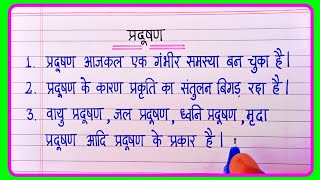 प्रदूषण
1. प्रदूषण आजकल एक गंभीर समस्या बन चुका है।
2. प्रदूषण के कारण प्रकृति का संतुलन बिगड़ रहा है।
3. वायु प्रदूषण, जल प्रदूषण, ध्वनि प्रदूषण, मृदा
प्रदूषण आदि प्रदूषण के प्रकार है।